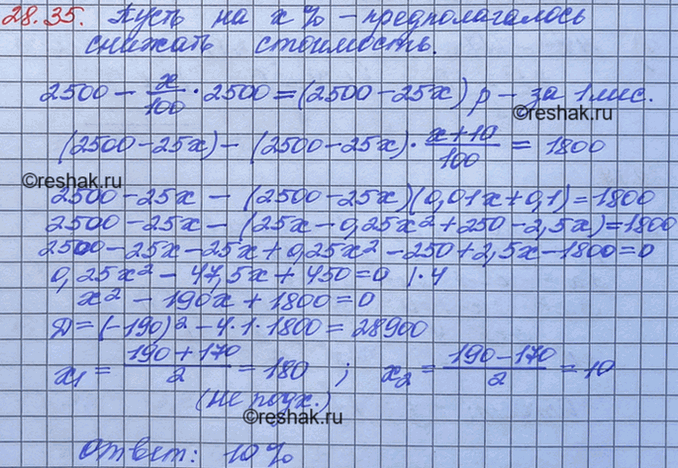 28.35. Пусть на x % – предполагалось
снижать стоимость.
2500 – x/100 · 2500 = (2500 – 25x) р – за 1 мес.
©reshak.ru
(2500 – 25x) – (2500 – 25x) · (x+10)/100 = 1800
©reshak.ru
2500 – 25x – (2500 – 25x)(0,01x + 0,1) = 1800
2500 – 25x – (25x – 0,25x² + 250 – 2,5x) = 1800
2500 – 25x – 25x + 0,25x² – 250 + 2,5x – 1800 = 0
0,25x² – 47,5x + 450 = 0 | · 4
x² – 190x + 1800 = 0
D = (–190)² – 4 · 1 · 1800 = 28900
x₁ = (190 + 170)/2 = 180 ; x₂ = (190 – 170)/2 = 10
(не подх.)
©reshak.ru
Ответ: 10 %